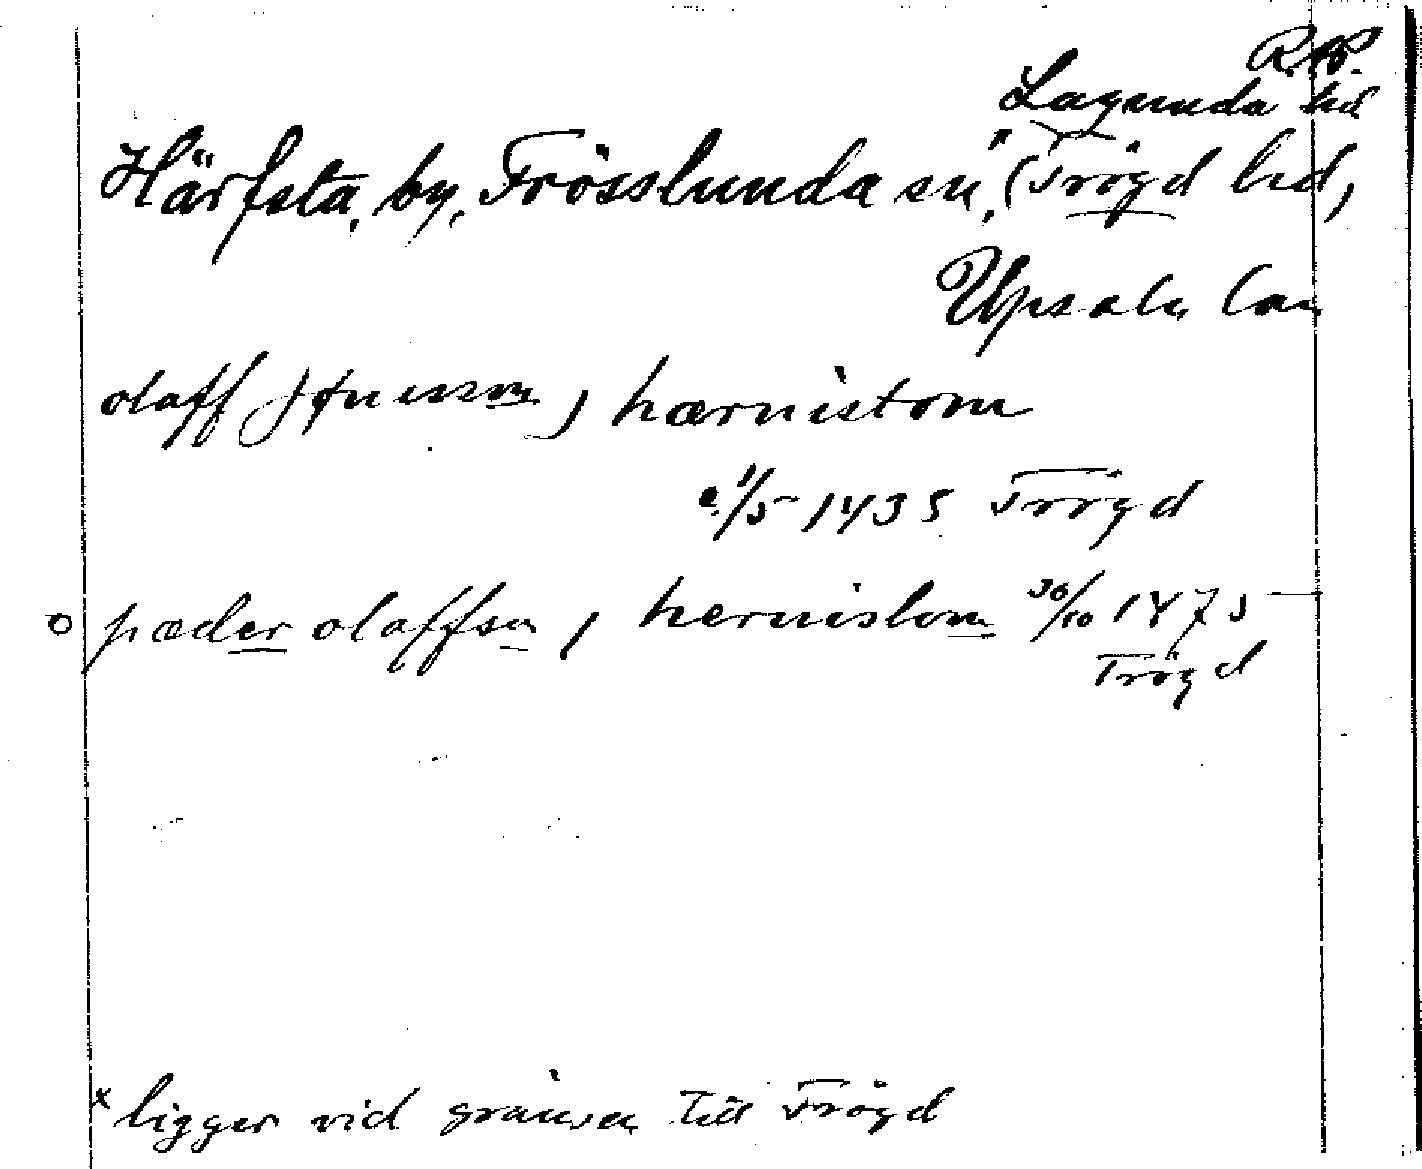 R.A.P.
Lagunda hd
Härfsta, by, Frösslunda sn, (Trögd hd,
Upsala län
olaff jönesson, hærnistom
e. 1/5 1435 Trögd
o pæder olaffson, hernistom 30/10 1475
Trögd
x ligger vid gränsen till Trögd